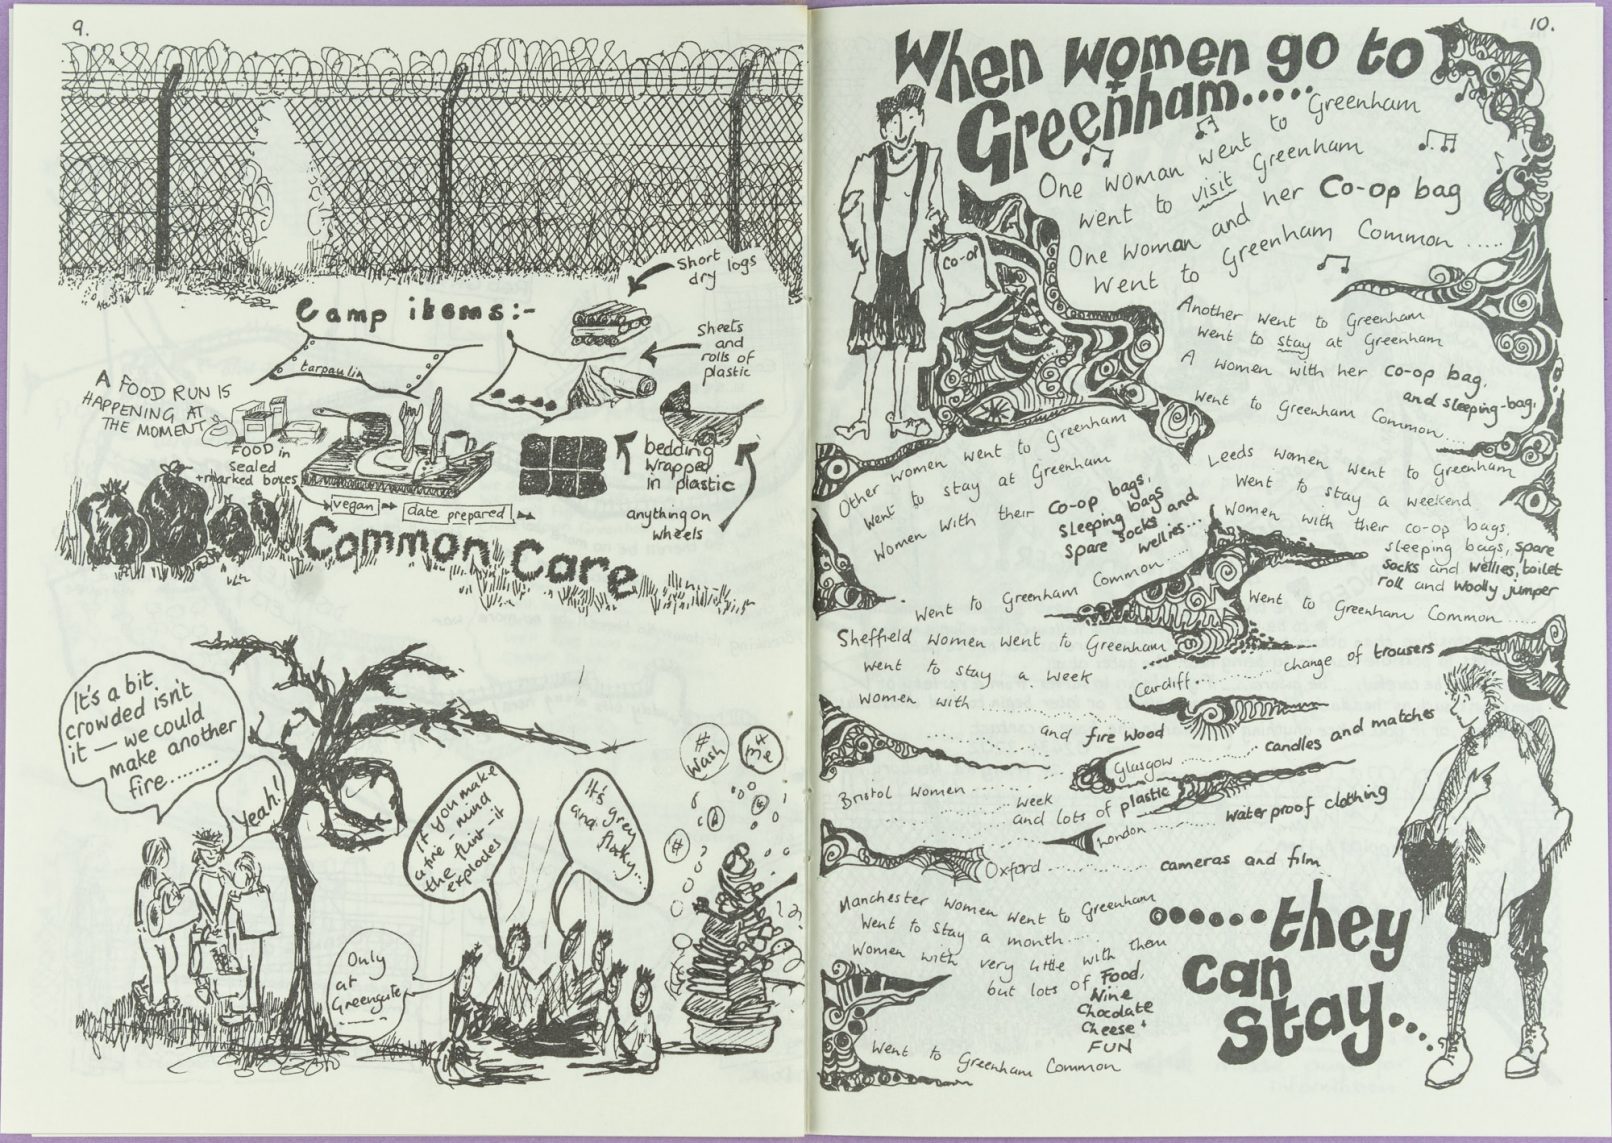 9.
Camp items:-
short logs
dry
tarpaulin
Sheets
and
rolls of
plastic
A FOOD RUN IS
HAPPENING AT
THE MOMENT
FOOD in
sealed
+marked boxes
vegan
date prepared
bedding
wrapped
in plastic
anything on
wheels
Common Care
It's a bit
crowded isn't
it — we could
make another
fire........
Yeah!
If you make
a fire - mind
the flint - it
explodes
It's grey
and flaky...
# Wash
# me
#
#
#
Only
at
Greengate
10.
When women go to
Greenham.....
One woman went to Greenham
went to visit Greenham
One woman and her Co-op bag
Went to Greenham Common .....
Co-op
Another went to Greenham
went to stay at Greenham
A women with her co-op bag,
and sleeping-bag,
went to Greenham Common....
Other women went to Greenham
Went to stay at Greenham
Women with their Co-op bags,
sleeping bags and
spare socks
wellies...
Went to Greenham Common.....
Leeds women went to Greenham
Went to stay a weekend
Women with their co-op bags,
sleeping bags, spare
socks and wellies, toilet
roll and woolly jumper
Went to Greenham Common .....
Sheffield women went to Greenham
went to stay a week
women with ..........
Cardiff............ change of trousers
and fire wood
Glasgow ............ candles and matches
Bristol women ........
........ week
........ and lots of plastic
London ........ waterproof clothing
Oxford ............ cameras and film
Manchester women went to Greenham
Went to stay a month.....
Women with very little with them
but lots of Food,
Wine
Chocolate
Cheese +
FUN
Went to Greenham Common
......they
can
stay....